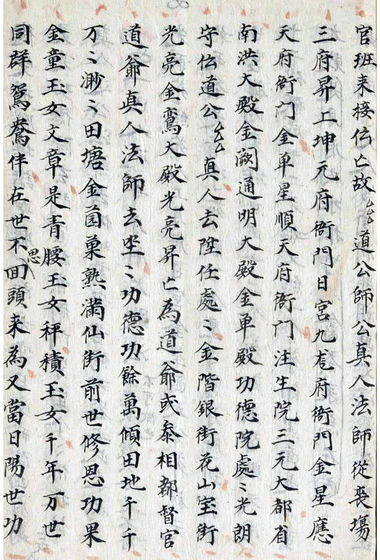 官班来接伝亡故厶厶道公師公真人法師從喪場
三府昇上坤元府衙門日宮九府衙門金星應
天府衙門金单星順天府衙門注生院三元大都省
南洪大殿金闕通明大殿金单殿功德院處〻光朗
守伝道公厶厶真人去陞任處〻金階銀街花山宝街
光亮金鸞大殿光亮昇亡為道爺或泰相都督官
道爺真人法師去坐〻功德功餘萬傾田地千千
万〻渺〻田塘金菌菓熟滿仙街前世修恩功果
金童玉女文章是青腰玉女秤積玉女千年万世
同群鴛鴦伴在世不思回頭来為又當日陽世功